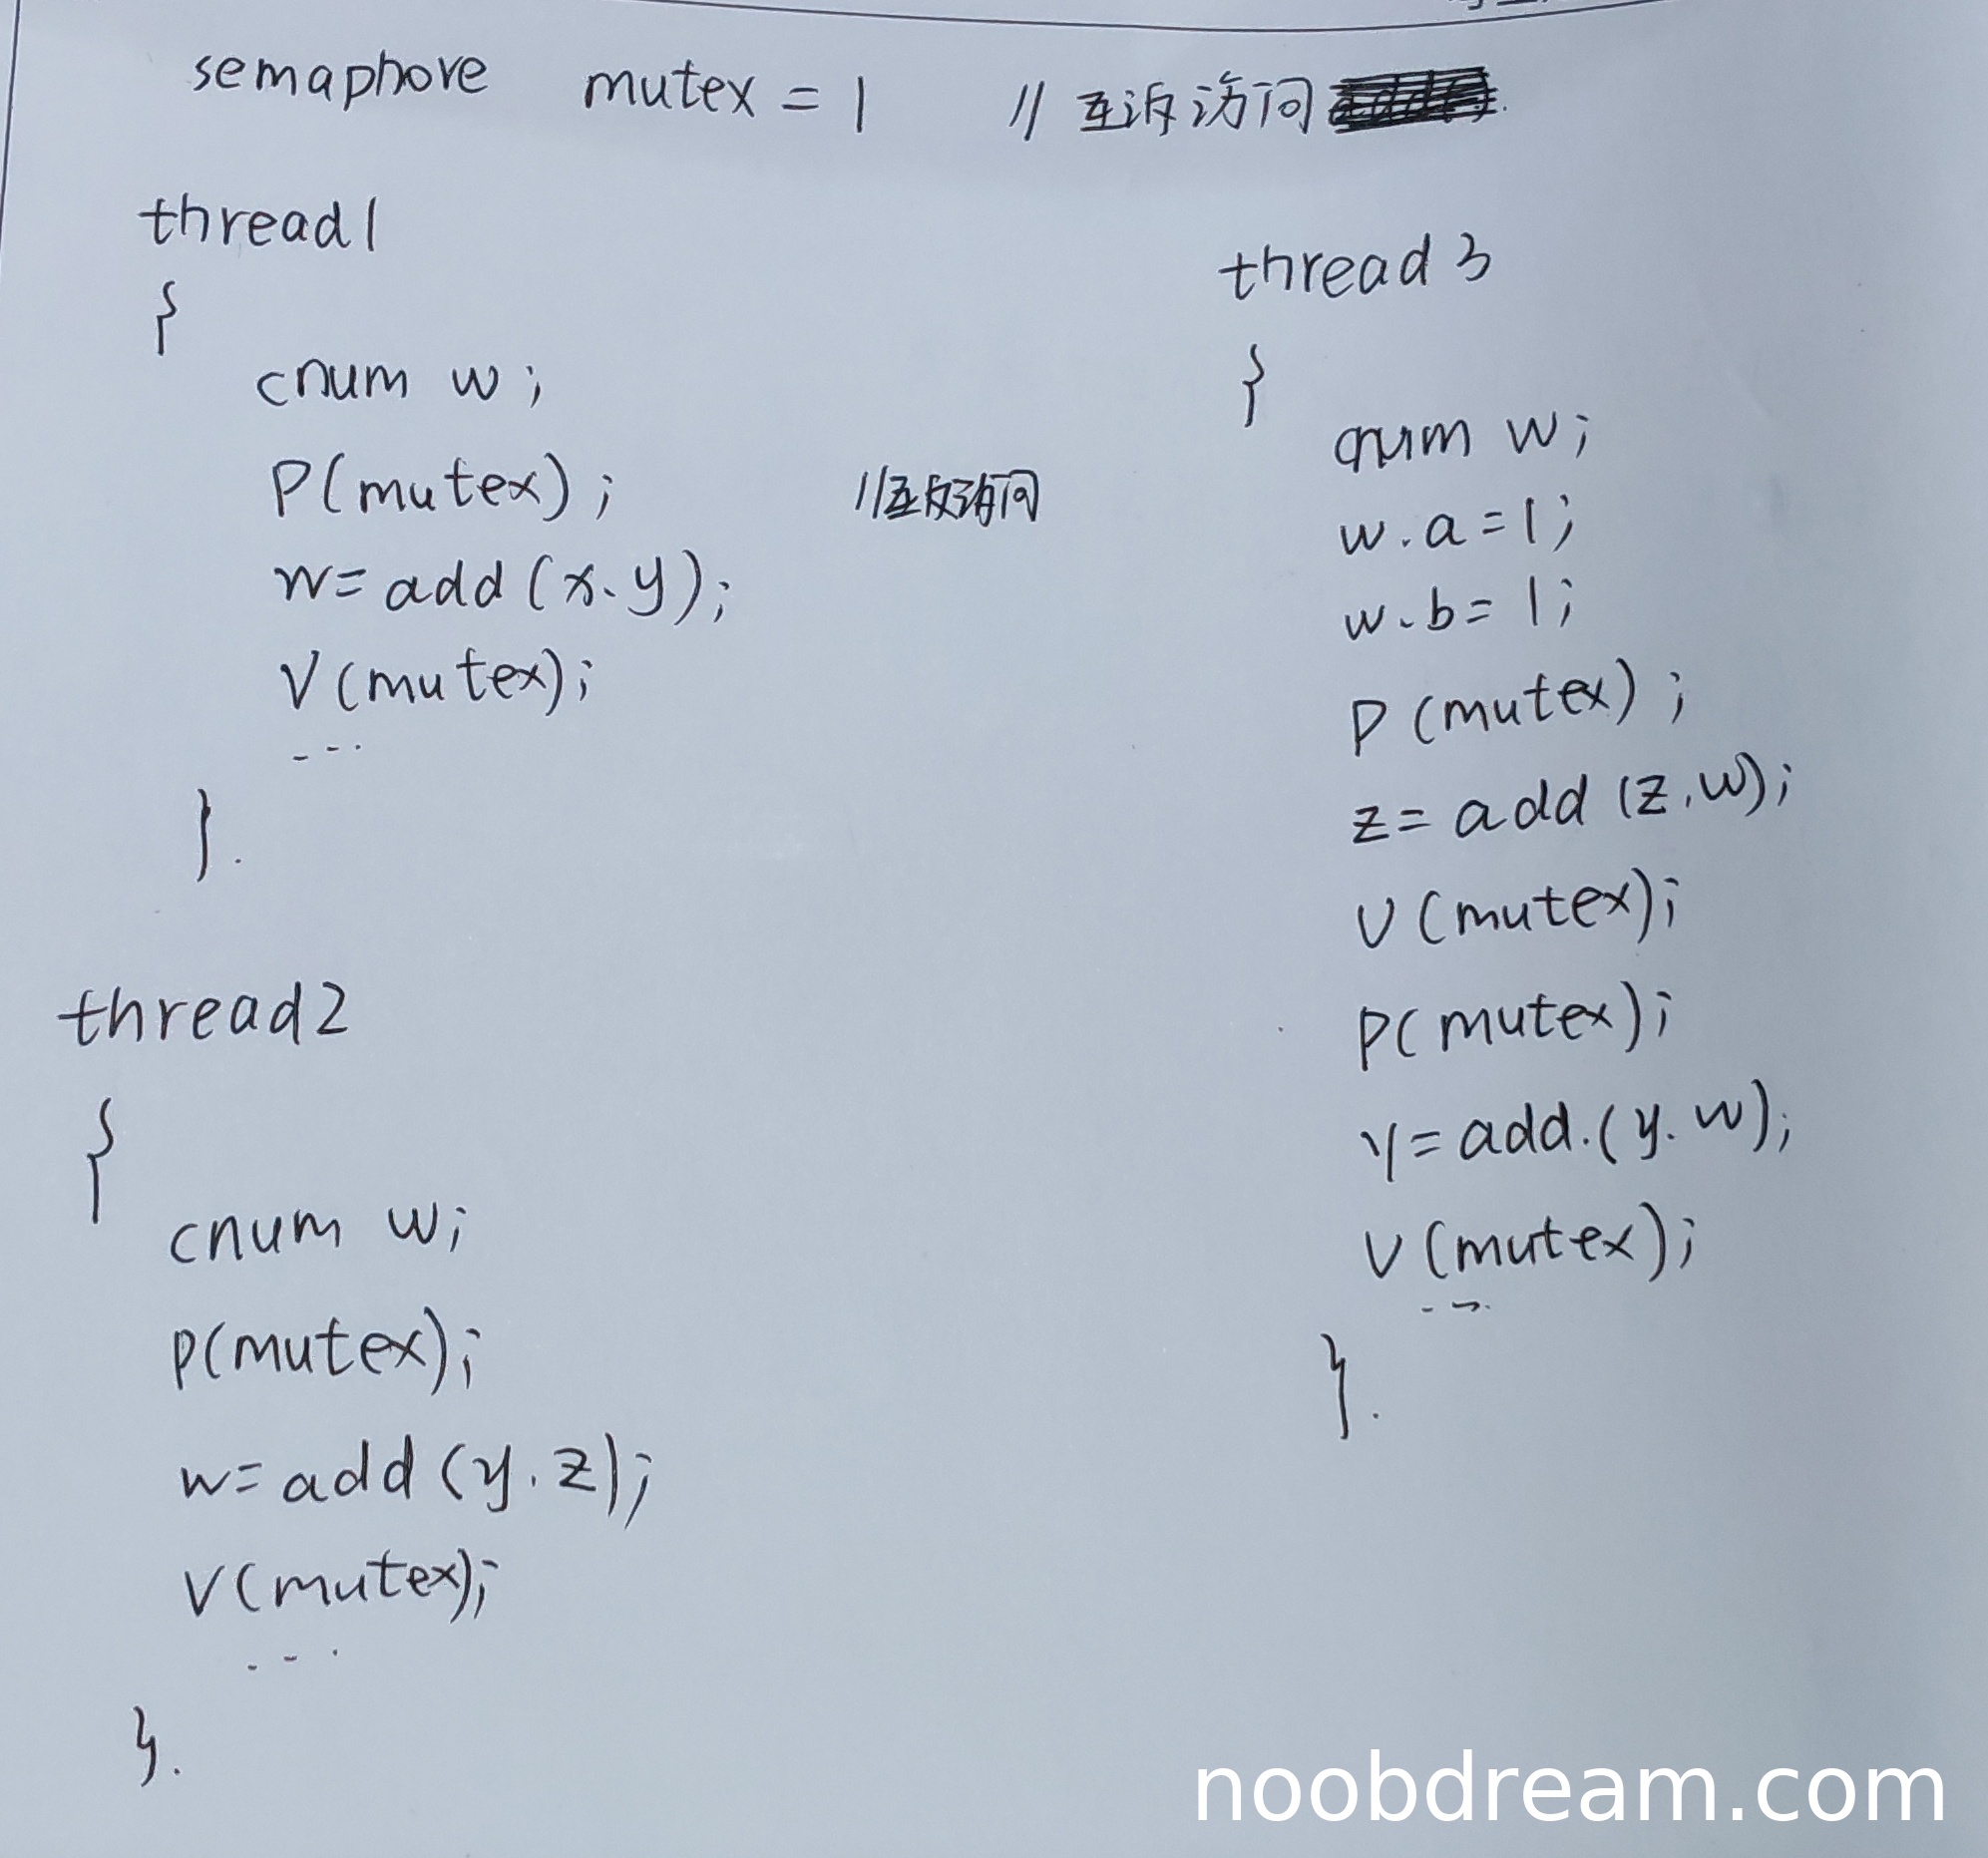 semaphore mutex = 1 // 互诉访问
thread1
{
cnum w;
P(mutex); //互反访问
w= add (x、y);
V(mutex);
...
}.
thread2
{
cnum w;
p(mutex);
w= add (y. z);
V(mutex);
...
}.
thread 3
{
cnum w;
w.a=1;
w.b=1;
P(mutex);
z= add (z.w);
V(mutex);
P(mutex);
y=add.(y.w);
V(mutex);
...
}.
noobdream.com